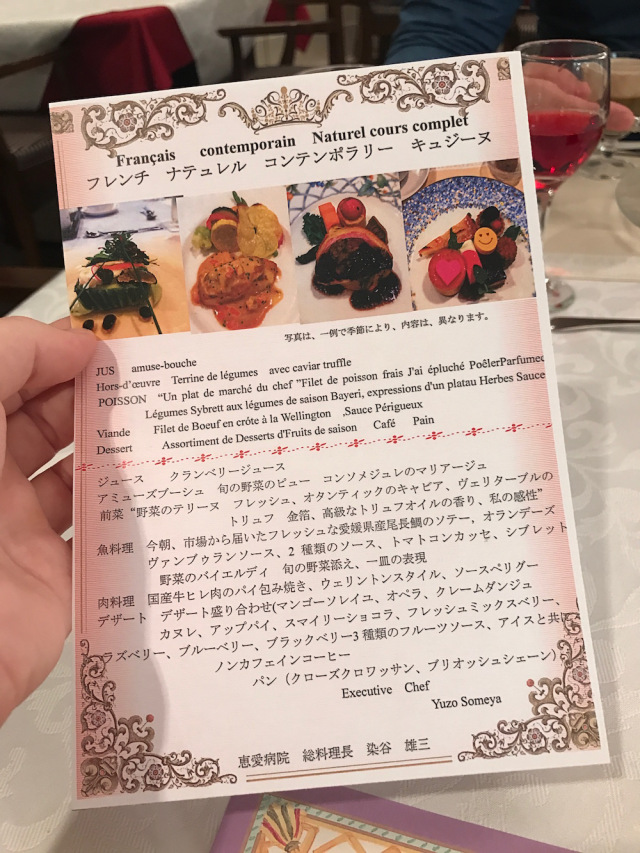 Français contemporain Naturel cours complet
フレンチ ナテュレル コンテンポラリー キュジーヌ
写真は、一例で季節により、内容は、異なります。
JUS amuse-bouche
Hors-d’œuvre Terrine de légumes avec caviar truffle
POISSON “Un plat de marché du chef ”Filet de poisson frais J'ai épluché PoêlerParfumed
Légumes Sybrett aux légumes de saison Bayeri, expressions d'un platau Herbes Sauce
Viande Filet de Boeuf en crôte à la Wellington ,Sauce Périgueux
Dessert Assortiment de Desserts d'Fruits de saison Café Pain
ジュース クランベリージュース
アミューズブーシュ 旬の野菜のピュー コンソメジュレのマリアージュ
前菜 “野菜のテリーヌ フレッシュ、オタンティックのキャビア、ヴェリターブルの
トリュフ 金箔、高級なトリュフオイルの香り、私の感性”
魚料理 今朝、市場から届いたフレッシュな愛媛県産尾長鯛のソテー，オランデーズ
ヴァンブゥランソース、2 種類のソース、トマトコンカッセ、シブレット
野菜のバイエルディ 旬の野菜添え、一皿の表現
肉料理 国産牛ヒレ肉のパイ包み焼き、ウェリントンスタイル、ソースペリグー
デザート デザート盛り合わせ(マンゴーソレイユ、オペラ、クレームダンジュ
カヌレ、アップパイ、スマイリーショコラ、フレッシュミックスベリー、
ラズベリー、ブルーベリー、ブラックベリー3 種類のフルーツソース、アイスと共に
ノンカフェインコーヒー
パン（クローズクロワッサン、ブリオッシュシェーン）
Executive Chef
Yuzo Someya
恵愛病院 総料理長 染谷 雄三